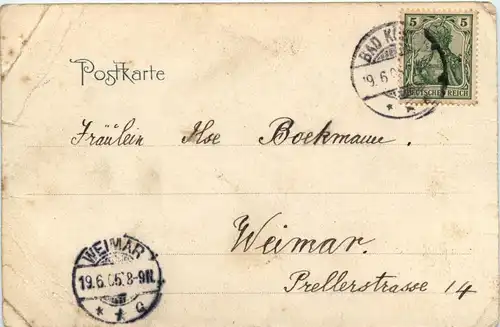 Postkarte
5 5
DEUTSCHES REICH
BAD
19.6.05
Fräulein Ilse Boekmann.
Weimar.
Prellerstrasse 14
WEIMAR
19.6.05. 8-9N.
* * c